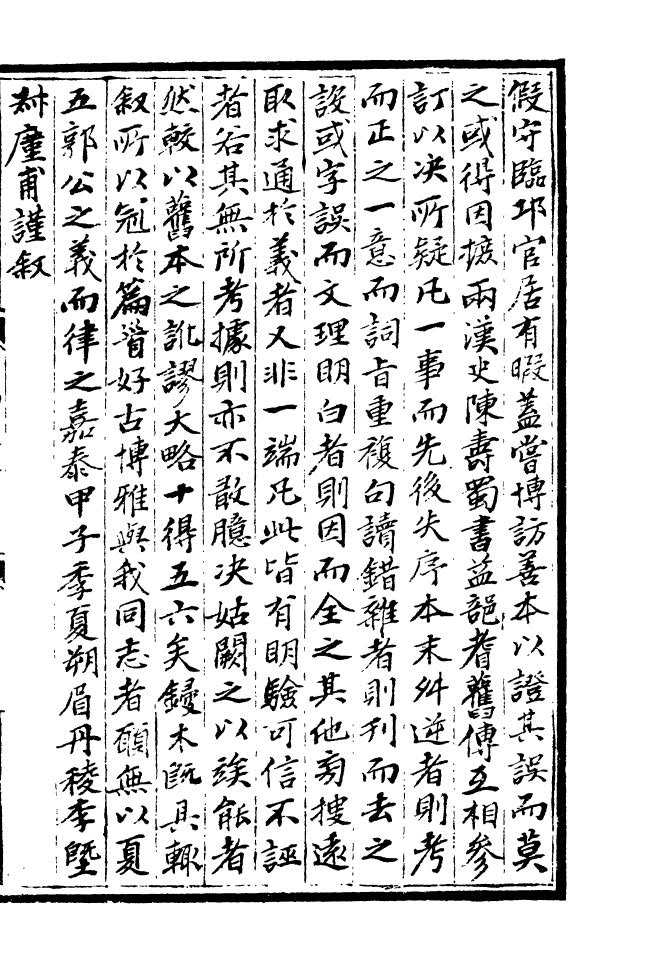 假守臨邛官居有暇蓋嘗博訪善本以證其誤而莫
之或得因摭兩漢史陳壽蜀書益部耆舊傳互相參
訂以决所疑凡一事而先後失序本末舛逆者則考
而正之一意而詞旨重複句讀錯雜者則刋而去之
設或字誤而文理明白者則因而全之其他旁搜遠
取求通於義者又非一端凡此皆有明驗可信不誣
者若其無所考據則亦不敢臆决姑闕之以俟能者
然較以舊本之訛謬大略十得五六矣鋟木既具輙
叙所以冠於篇首好古博雅與我同志者願無以夏
五郭公之義而律之嘉泰甲子季夏朔眉丹稜李㙺
叔廑甫謹叙